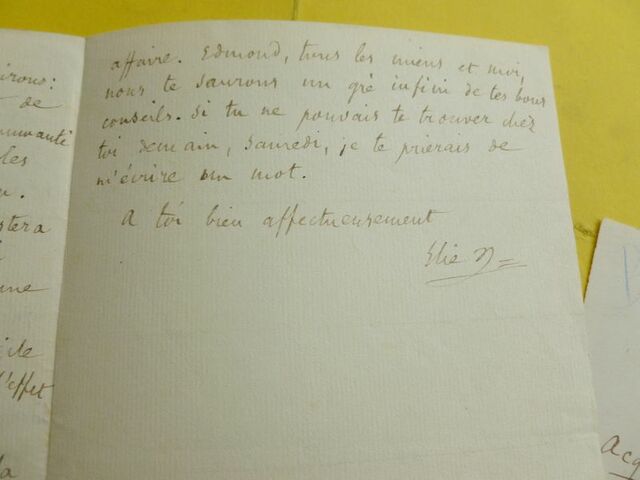 irons:
de
munauté
les
n.
stera
i
une
ile
l'effet
la
affaire. Edmond, tous les miens et moi,
nous te saurons un gré infini de tes bons
conseils. Si tu ne pouvais te trouver chez
toi demain, samedi, je te prierais de
m'écrire un mot.
A toi bien affectueusement
Elie
Acq